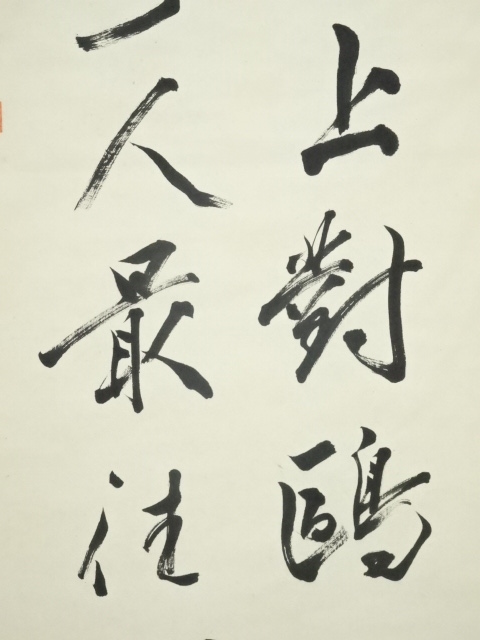 上對鷗
人最佳